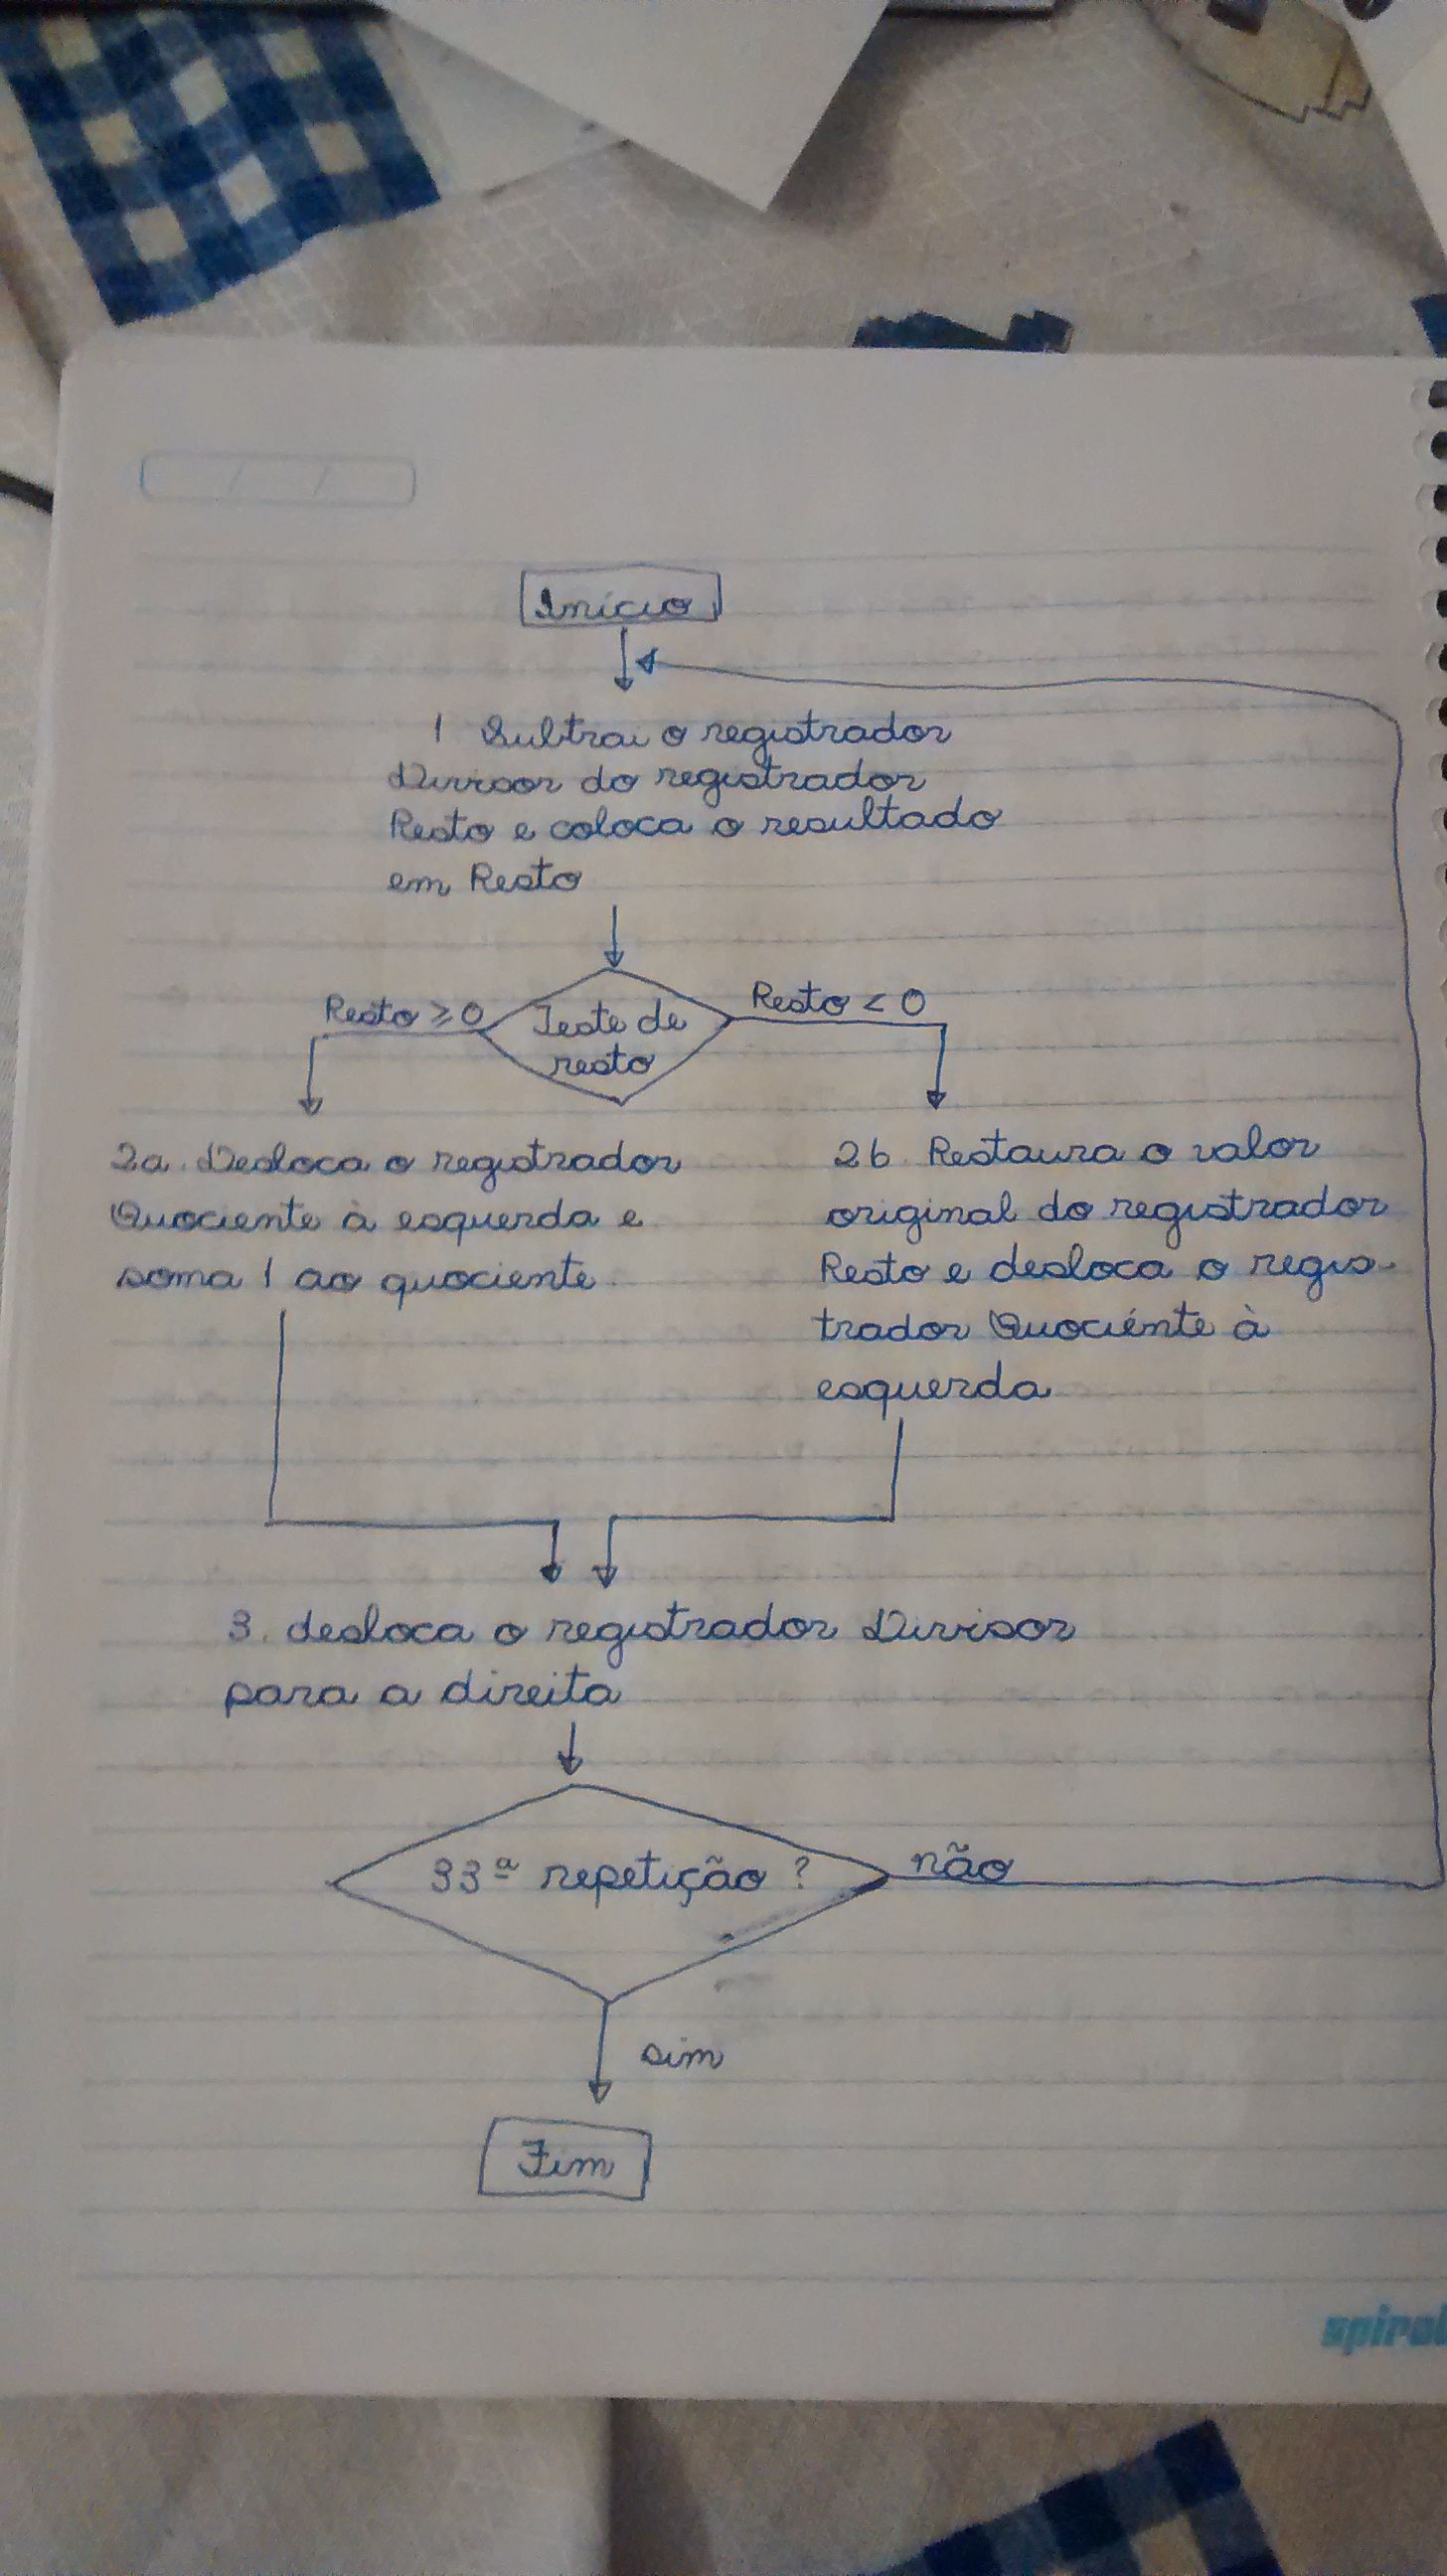 Início
1 Subtrai o registrador
Divisor do registrador
Resto e coloca o resultado
em Resto
Resto ≥ 0
Teste de
resto
Resto < 0
2a. Desloca o registrador
Quociente à esquerda e
soma 1 ao quociente.
2b Restaura o valor
original do registrador
Resto e desloca o regis-
trador Quociénte à
esquerda
3. desloca o registrador Divisor
para a direita
33ª repetição ?
não
sim
Fim